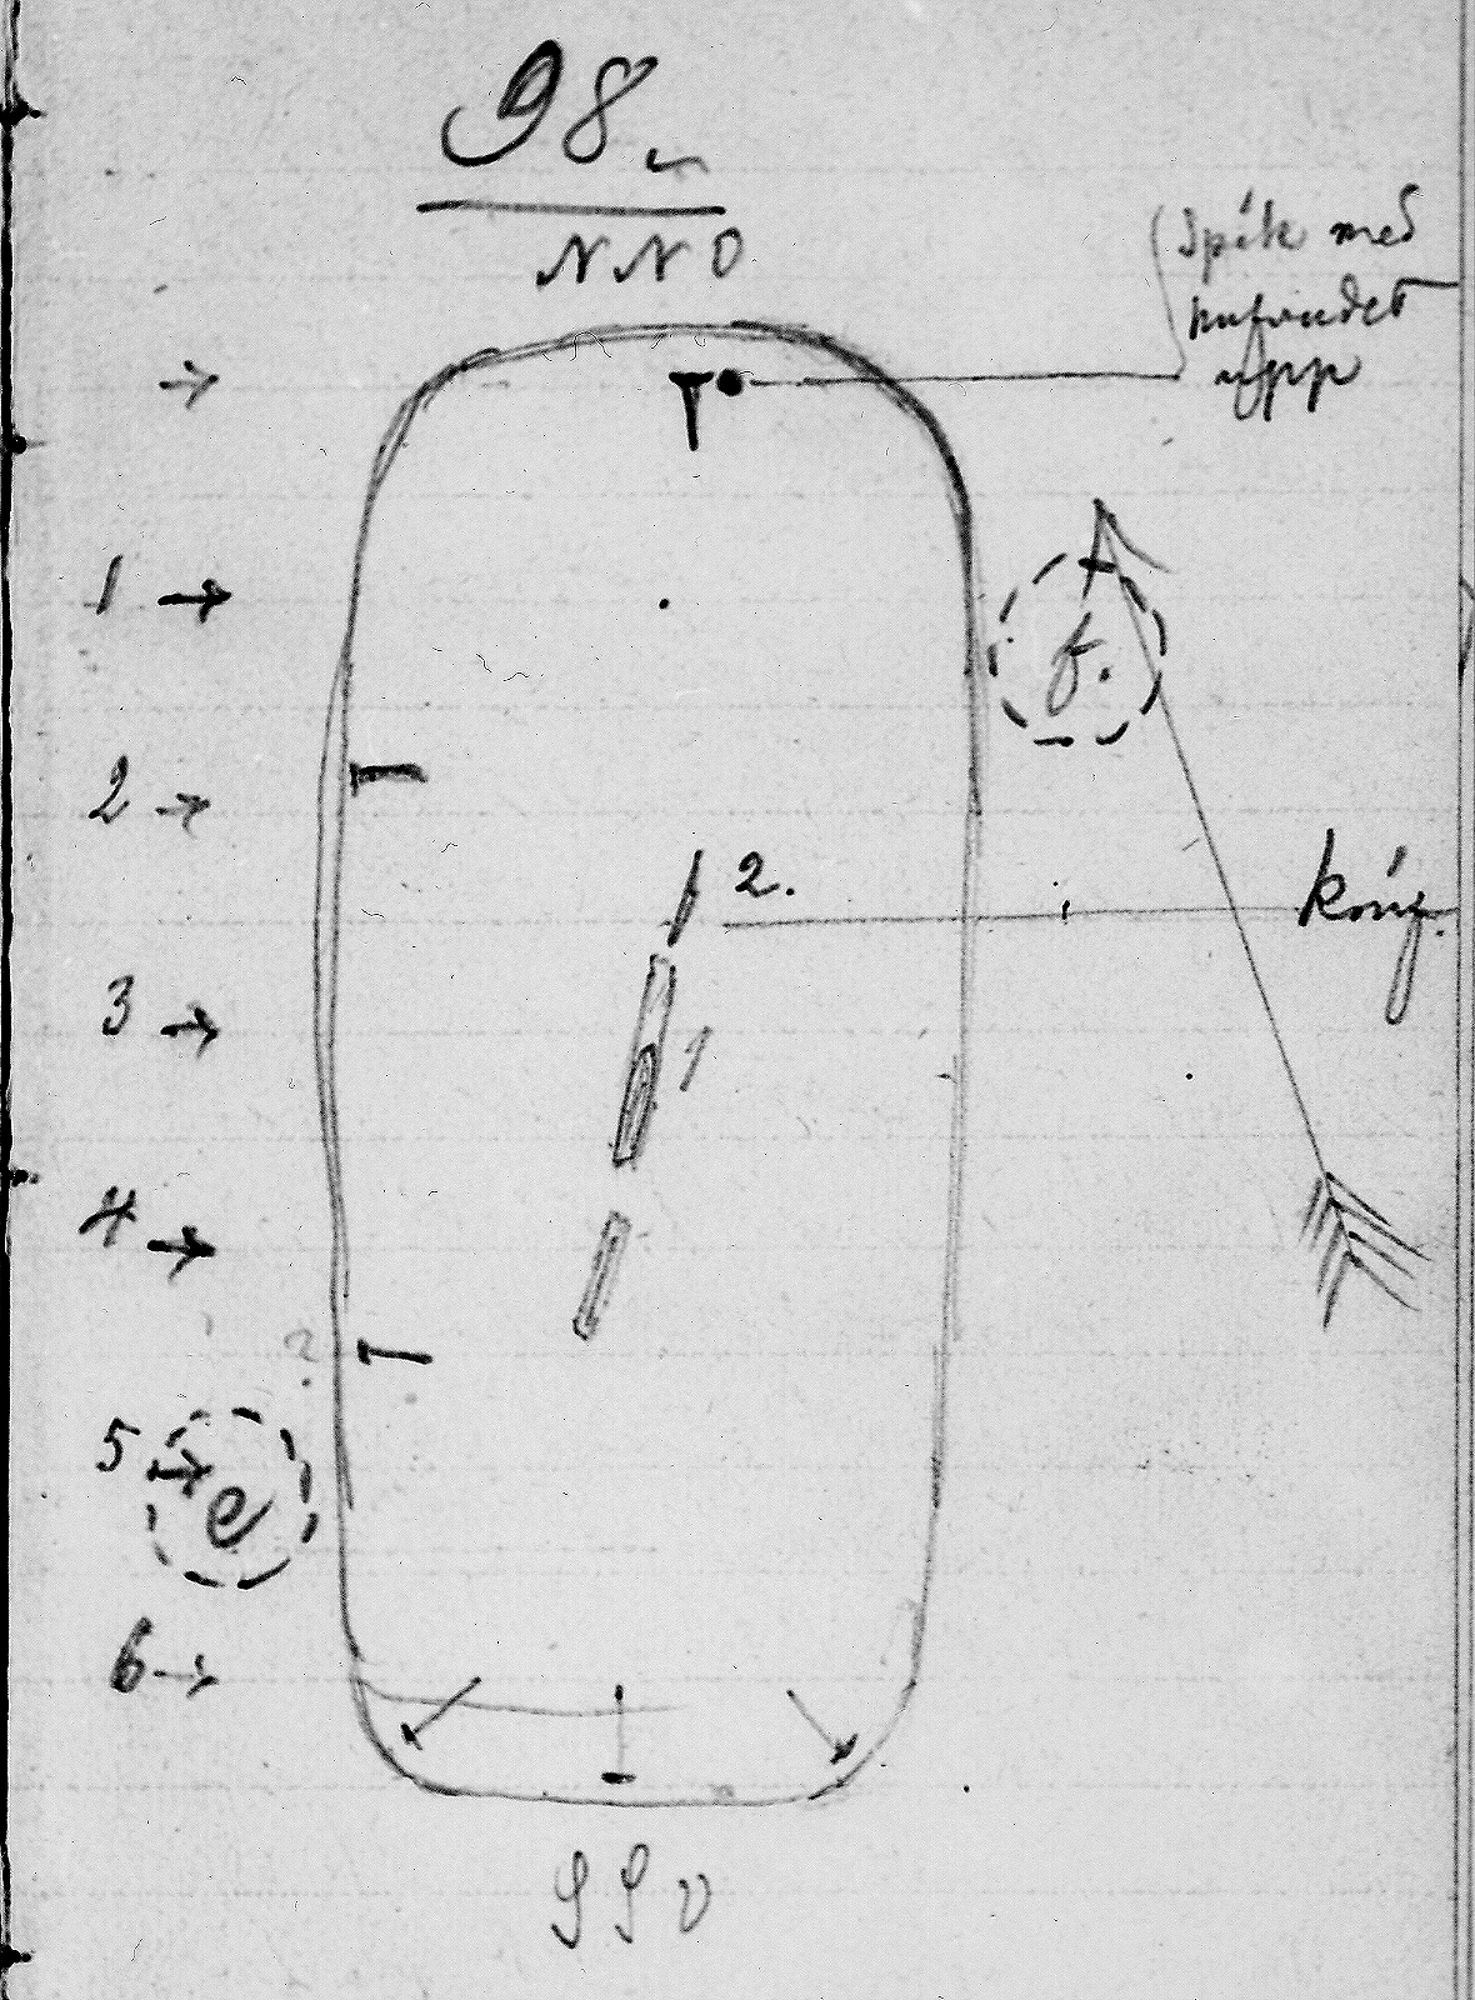 98.
NNO
Spik med
hufvudet
upp
1
f.
2
2.
3
1
4
?
5
e
6
SSV